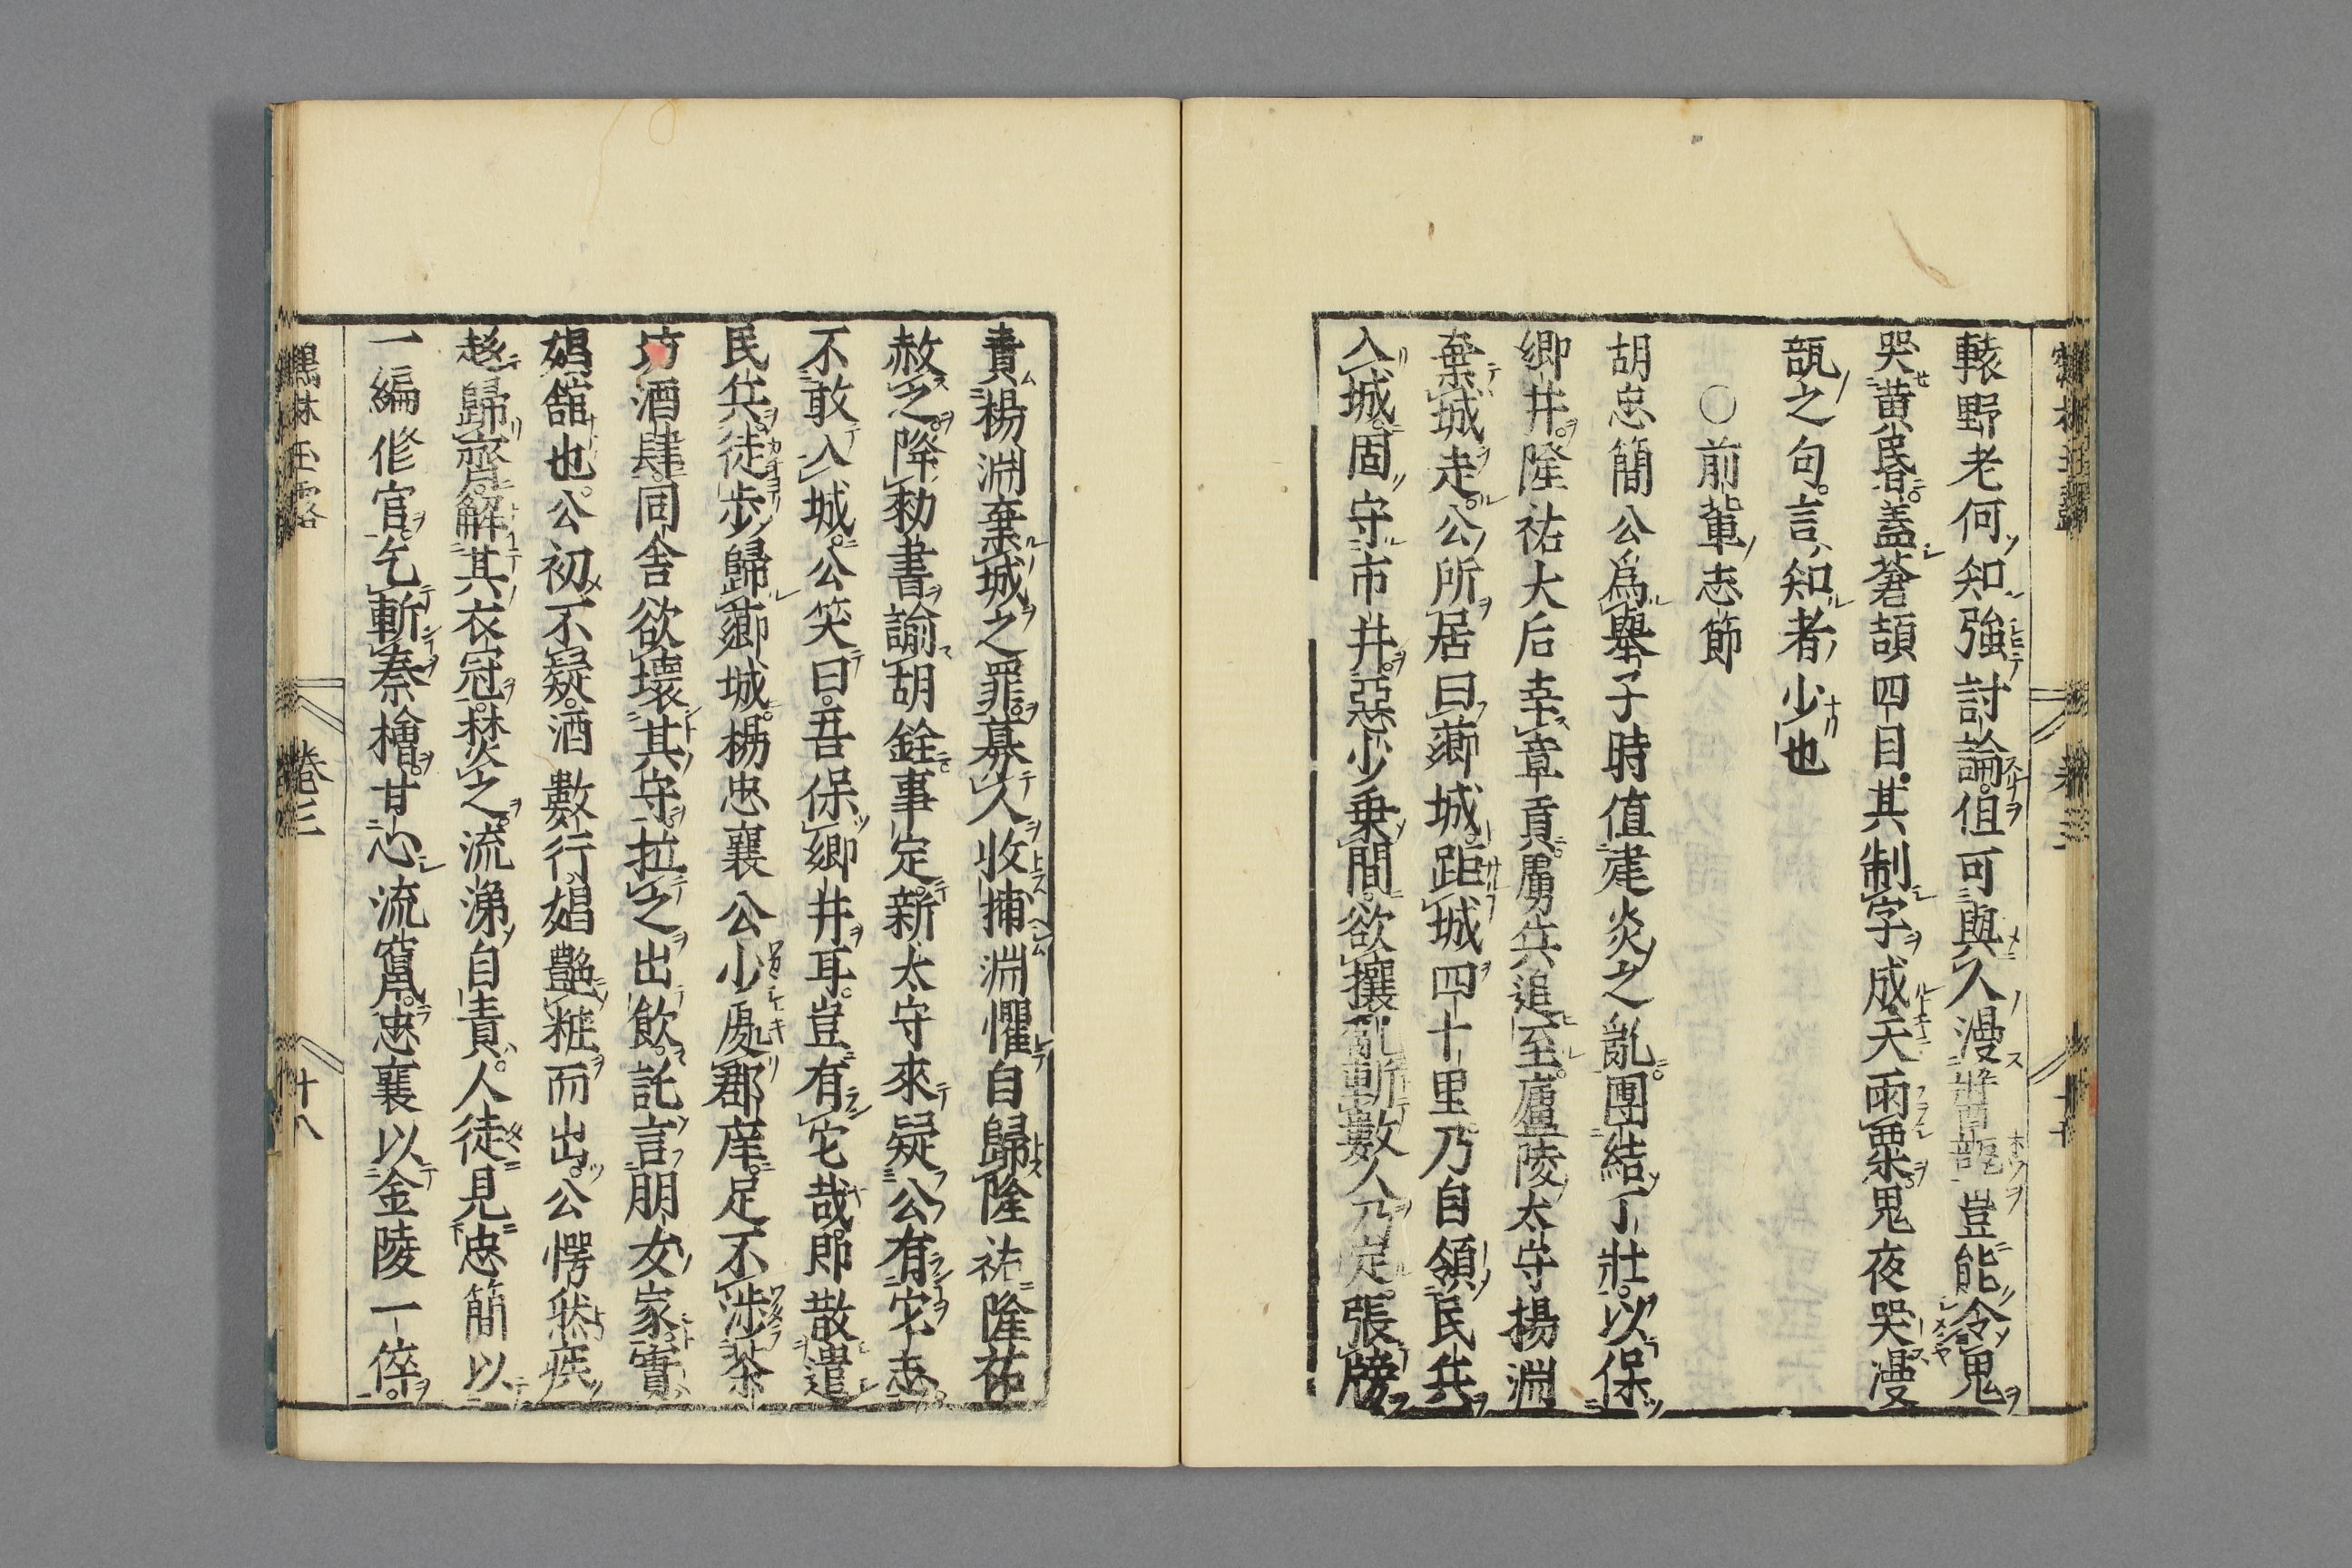 轅野老何知強討論但可與人漫醬瓿豈能令鬼
哭黄昏。盖蒼頡四目其制字成天雨粟鬼夜哭漫
瓿之句。言知者少也
〇前輩志節
胡忠簡公爲舉子時値建炎之亂。團結丁壯。以保
鄉井。隆祐大后幸章貢。虜兵追至。廬陵太守楊淵
棄城走。公所居曰薌城。距城四十里乃自領民兵
入城。固守市井。惡少乗間。欲攘亂斬數人乃定。張牓
責楊淵棄城之罪。募人收捕淵懼自歸隆祐隆祐
赦之。降勅書諭胡銓事定。新太守來疑公有它志。
不敢入城。公笑曰。吾保鄉井耳。豈有它哉。即散遣
民兵。徒歩歸薌城。楊忠襄公小處郡庠。足不渉茶
坊酒肆。同舍欲壞其守。拉之出飲。託言朋女家。實
娼舘也。公初不疑。酒數行。娼艶粧而出。公愕然疾
趍歸齋。解其衣冠。焚之。流涕自責。人徒見忠簡以
一編修官。乞斬秦檜。甘心流竄。忠襄以金陵一倅。
鶴林玉露 卷三 十八